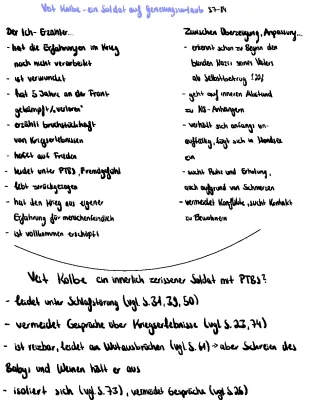 Veit Kolbe - ein Soldat auf Genesungsurlaub S7-14
Der Ich-Erzähler...
- hat die Erfahrungen im Krieg
noch nicht verarbeitet
- ist verwundet
- hat 5 Jahre an der Front
gekämpft/„verloren"
- erzählt bruchstückhaft
von Kriegserlebnissen
- hofft auf Frieden
- leidet unter PTBS, Fremdgefühl
- lebt zurückgezogen
- hat den Krieg aus eigener
Erfahrung für menschenfeindlich
- ist vollkommen erschöpft
Zwischen Überzeugung, Anpassung...
- erkennt schon zu Beginn den
Nazis seines Vaters
als Selbstbetrug
- geht auf inneren Abstand
zu NS-Anhängern
- verhält sich anfangs un-
auffällig, fügt sich in
ein
- sucht Ruhe und Erholung,
auch aufgrund von Schmerzen
- vermeidet Konflikte, sucht Kontakt
zu Bewohnern
Veit Kolbe ein innerlich zerissener Soldat mit PTBS?
- leidet unter Schlafstörung (vgl S.31, 39, 50)
- vermeidet Gespräche über Kriegserlebnisse (vgl S.23, 74)
- ist reizbar, leidet an Wutausbrüchen (vgl S. 61) → aber Schreien des
Babys und Weinen hält er aus
- isoliert sich (vgl S.73), vermeidet Gespräche (vgl S.26)